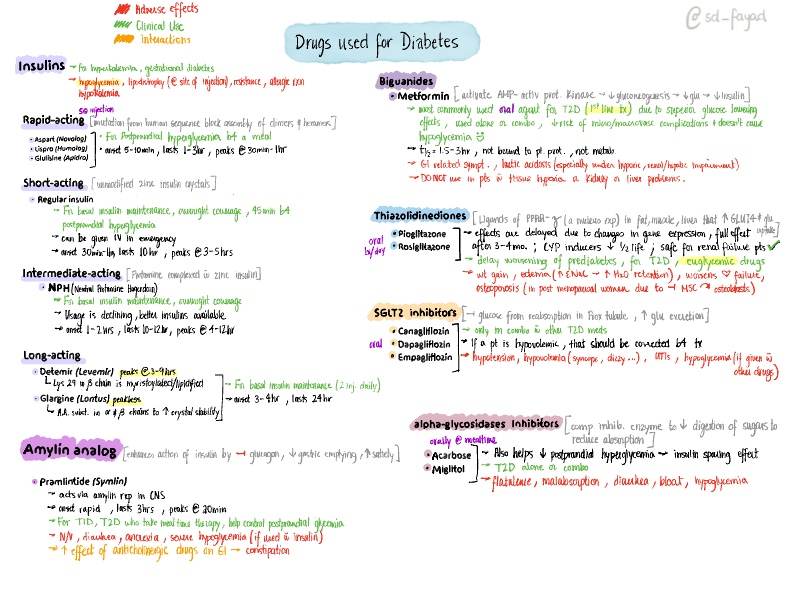 Adverse effects
Clinical Use
Interactions
@sd_fayad
Drugs used for Diabetes
Insulins
→ For hyperkalemia, gestational diabetes
→ hypoglycemia, lipodistrophy (@ site of injection), resistance, allergic rxn
hypokalemia
SQ injection
Rapid-acting [mutation from human sequence block assembly of dimers & hexamers]
Aspart (Novolog)
Lispro (Humolog)
Glulisine (Apidra)
• For Postprandial hyperglycemia b4 a meal
• onset 5-10min, lasts 1-3hr, peaks @ 30min-1hr
Short-acting [unmodified zinc insulin crystals]
Regular insulin
→ For basal insulin maintenance, overnight coverage, 45min b4
postprandial hyperglycemia
→ can be given IV in emergency
→ onset 30min-1h, lasts 10hr, peaks @ 3-5hrs
Intermediate-acting [Protamine complexed w zinc insulin]
NPH (Neutral Protamine Hagedorn)
→ For basal insulin maintenance, overnight coverage
→ Usage is declining, better insulins available
→ onset 1-2hrs, lasts 10-12hr, peaks @ 4-12hr
Long-acting
Detemir (Levemir) peaks @ 3-9hrs
Lys 29 in β chain is myristoylated/lipidified
Glargine (Lantus) peakless
A.A. subst. in α & β chains to ↑ crystal stability
→ For basal insulin maintenance (2 inj. daily)
→ onset 3-4hr, lasts 24hr
Amylin analog [enhances action of insulin by ⊣ glucagon, ↓ gastric emptying, ↑ satiety]
Pramlintide (Symlin)
→ acts via amylin rep in CNS
→ onset rapid, lasts 3hrs, peaks @ 20min
→ For T1D, T2D who take mealtime therapy, help control postprandial glycemia
→ N/V, diarrhea, anorexia, severe hypoglycemia (if used w insulin)
→ ↑ effect of anticholinergic drugs on GI → constipation
Biguanides
Metformin [activate AMP-activ prot. kinase → ↓ gluconeogenesis → ↓ glu → ↓ insulin]
→ most commonly used oral agent for T2D (1st line tx) due to superior glucose lowering
effects, used alone or combo, ↓ risk of micro/macrovascular complications & doesn't cause
hypoglycemia
→ t1/2 = 1.5-3hr, not bound to pl. prot., not metab.
→ GI related sympt., lactic acidosis (especially under hypoxic, renal/hepatic impairment)
→ DO NOT use in pts w tissue hypoxia or kidney or liver problems.
Thiazolidinediones [Ligands of PPAR-γ (a nucleus rep) in fat, muscle, liver that ↑ GLUT4 & glu uptake]
oral
1x/day
Pioglitazone
Rosiglitazone
→ effects are delayed due to changes in gene expression, full effect
after 3-4mo.; CYP inducers ↓ 1/2 life; safe for renal failure pts ✓
→ delay worsening of prediabetes, for T2D, euglycemic drugs
→ wt gain, edema (↑ ENaC → ↑ H2O retention), worsens ♡ failure,
osteoporosis (in post menopausal women due to ⊣ MSC ↷ osteoblasts)
SGLT2 inhibitors [⊣ glucose from reabsorption in Prox tubule, ↑ glu excretion]
oral
Canagliflozin
Dapagliflozin
Empagliflozin
→ only in combo w other T2D meds
→ If a pt is hypovolemic, that should be corrected b4 tx
→ hypotension, hypovolemia (syncope, dizzy...), UTIs, hypoglycemia (if given w
other drugs)
alpha-glycosidases Inhibitors [comp. inhib. enzyme to ↓ digestion of sugars to
reduce absorption]
orally @ mealtime
Acarbose
Miglitol
→ Also helps ↓ postprandial hyperglycemia → insulin sparing effect
→ T2D alone or combo
→ flatulence, malabsorption, diarrhea, bloat, hypoglycemia